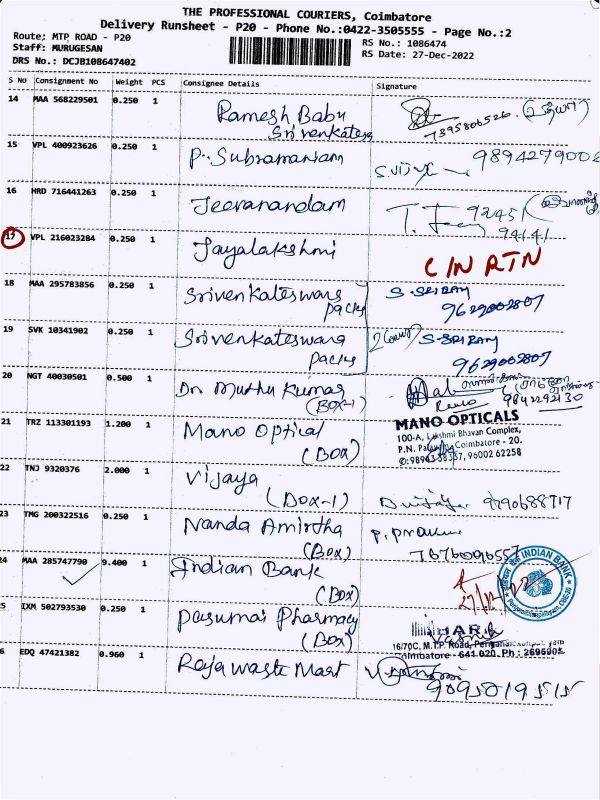 THE PROFESSIONAL COURIERS, Coimbatore
Delivery Runsheet - P20 - Phone No.:0422-3505555 - Page No.:2
Route: MTP ROAD - P20
RS No.: 1086474
Staff: MURUGESAN
RS Date: 27-Dec-2022
DRS No.: DCJB108647402
S No Consignment No Weight PCS Consignee Details Signature
14 MAA 568229501 0.250 1 Ramesh Babu
Srivenkatesa
7395806526
15 VPL 400923626 0.250 1 P. Subramaniam
9894279002
16 HRD 716441263 0.250 1 Jeevanandam
92451
94141
17 VPL 216023284 0.250 1 Jayalakshmi
C/N RTN
18 MAA 295783856 0.250 1 Srivenkateswara S. SRIRAM
packs 9629002807
19 SVK 10341902 0.250 1 Srivenkateswara S-SRIRAM
packs 9629002807
20 NGT 40030501 0.500 1 Dr. Muthu Kumar
(BOX-1) 9842292130
21 TRZ 113301193 1.200 1 Mano Optical
(BOX)
MANO OPTICALS
100-A, Lakshmi Bhavan Complex,
Coimbatore - 20.
96002 62258
22 TNJ 9320376 2.000 1 Vijaya
(BOX-1) 9790688717
23 TMG 200322516 0.250 1 Nanda Amirtha
(BOX) 7676096557
24 MAA 285747790 9.400 1 Indian Bank
(BOX) 27/12/2022
INDIAN BANK
25 IXM 502793530 0.250 1 Pasumai Pharmacy
(BOX)
16/70C, M.T.P. Road,
Coimbatore - 641 020. Ph : 2695905
26 EDQ 47421382 0.960 1 Raja waste Mart
9095819515